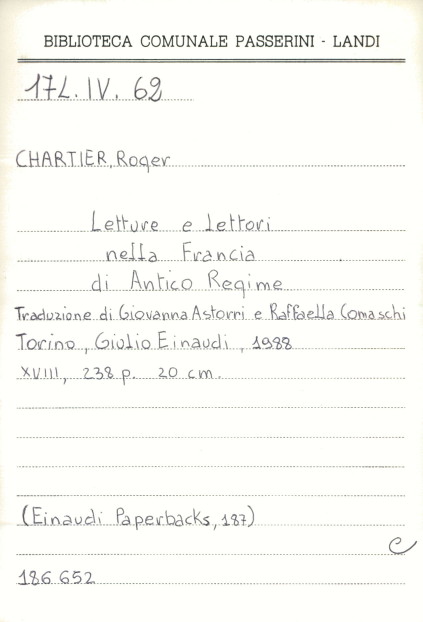 BIBLIOTECA COMUNALE PASSERINI - LANDI
17L.IV. 62
CHARTIER, Roger
Letture e lettori
nella Francia
di Antico Regime
Traduzione di Giovanna Astorri e Raffaella Comaschi
Torino, Giulio Einaudi, 1988
XVIII, 238 p. 20 cm.
(Einaudi Paperbacks, 187)
C
186 652